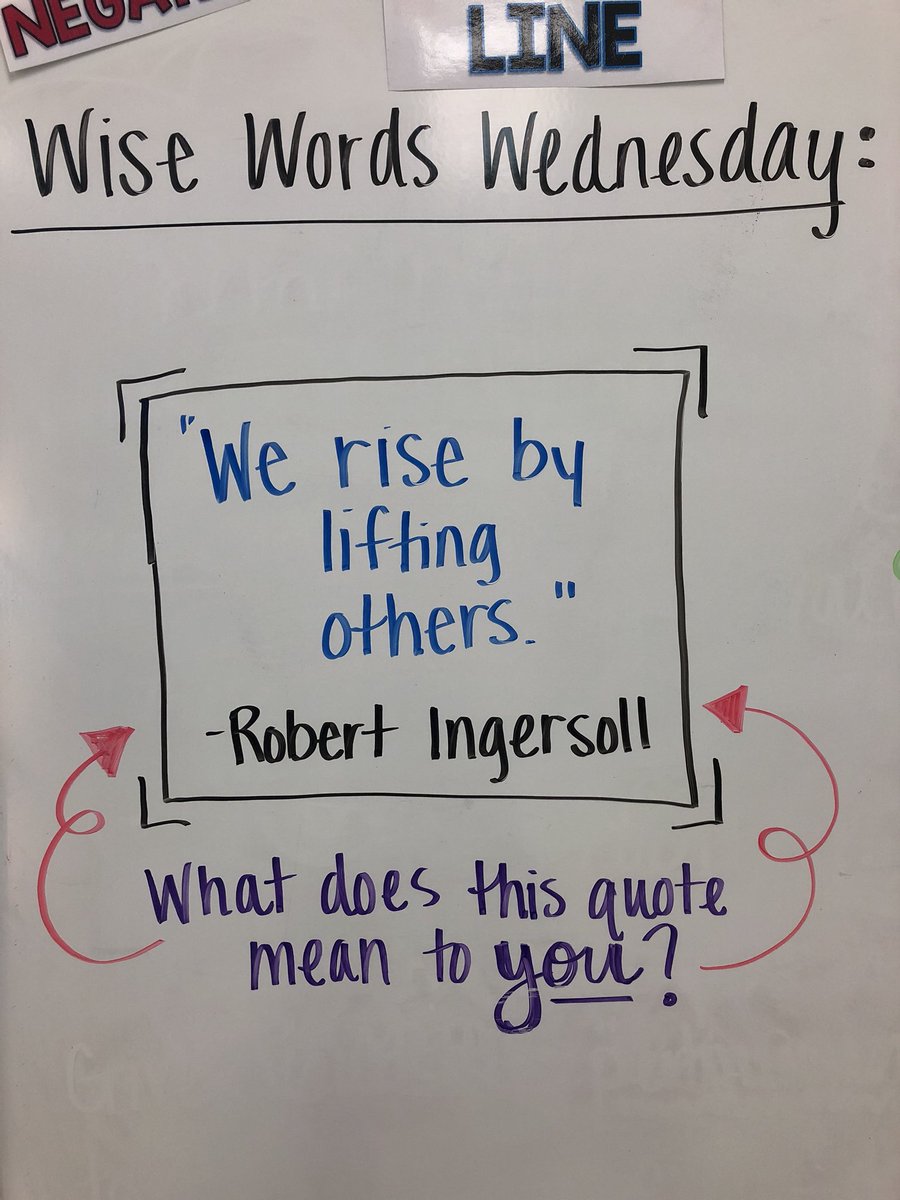 LINE
Wise Words Wednesday:
"We rise by
lifting
others."
-Robert Ingersoll
What does this quote
mean to you?